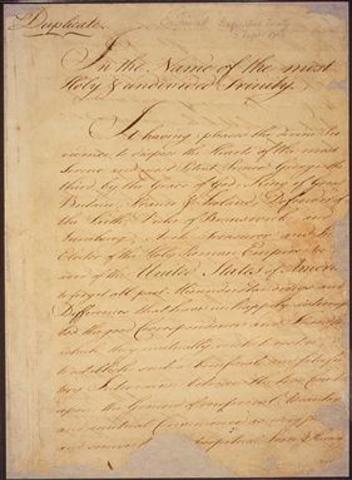 Duplicate.
In the Name of the most
Holy & undivided Trinity.
It having pleased the divine Pro
vidence to dispose the Hearts of the most
Serene and most Potent Prince George the
third, by the Grace of God, King of Great
Britain, France & Ireland, Defender of
the Faith, Duke of Brunswick and
Lunebourg, Arch Treasurer and
Elector of the Holy Roman Empire
and of the United States of America
to forget all past Misunderstandings and
Differences that have unhappily interrup
ted the good Correspondence and Friendship
which they mutually wish to
to establish such a beneficial and
Intercourse between the two Countries
upon the Ground of reciprocal Advantages
and mutual Convenience as may
and secure perpetual Peace &